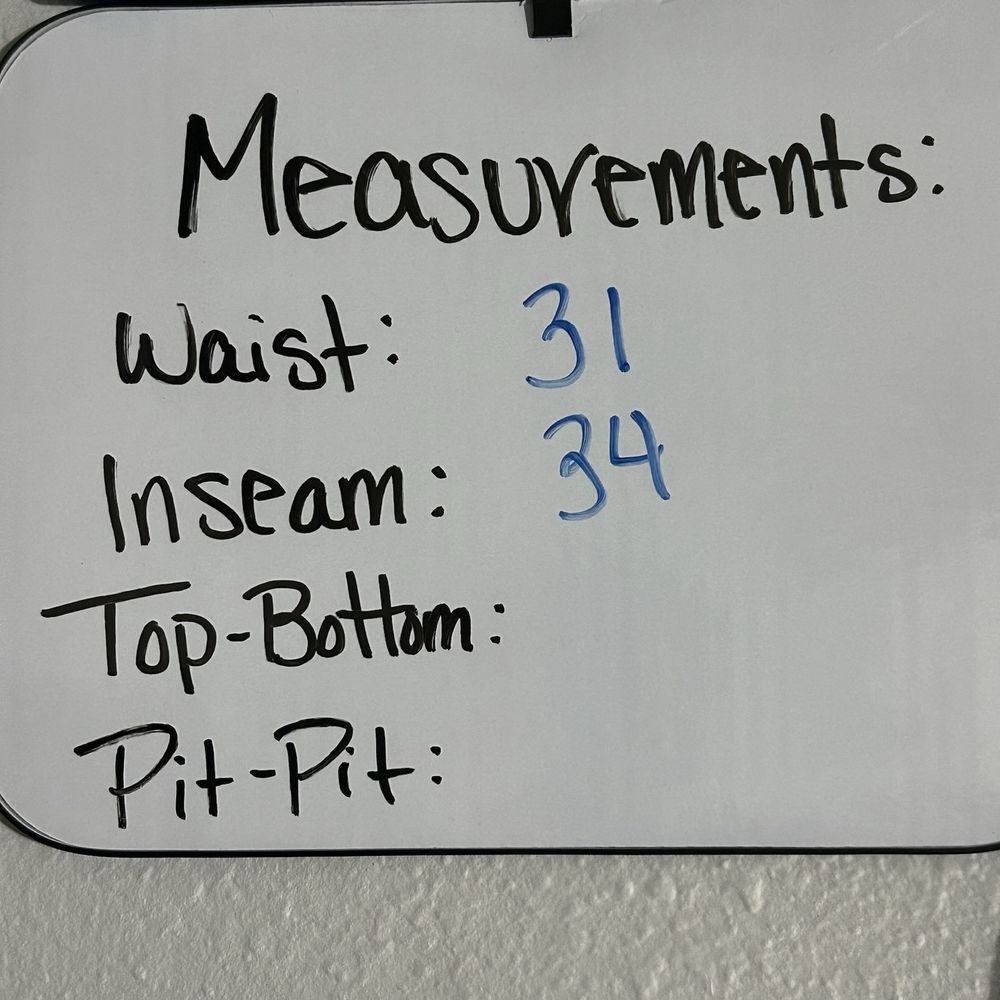 Measurements:
Waist: 31
Inseam: 34
Top-Bottom:
Pit-Pit: